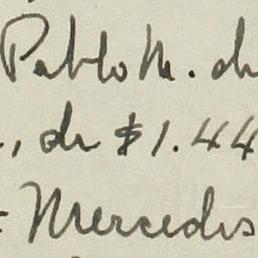 Pablo M. de
, de $1.44
Mercedes